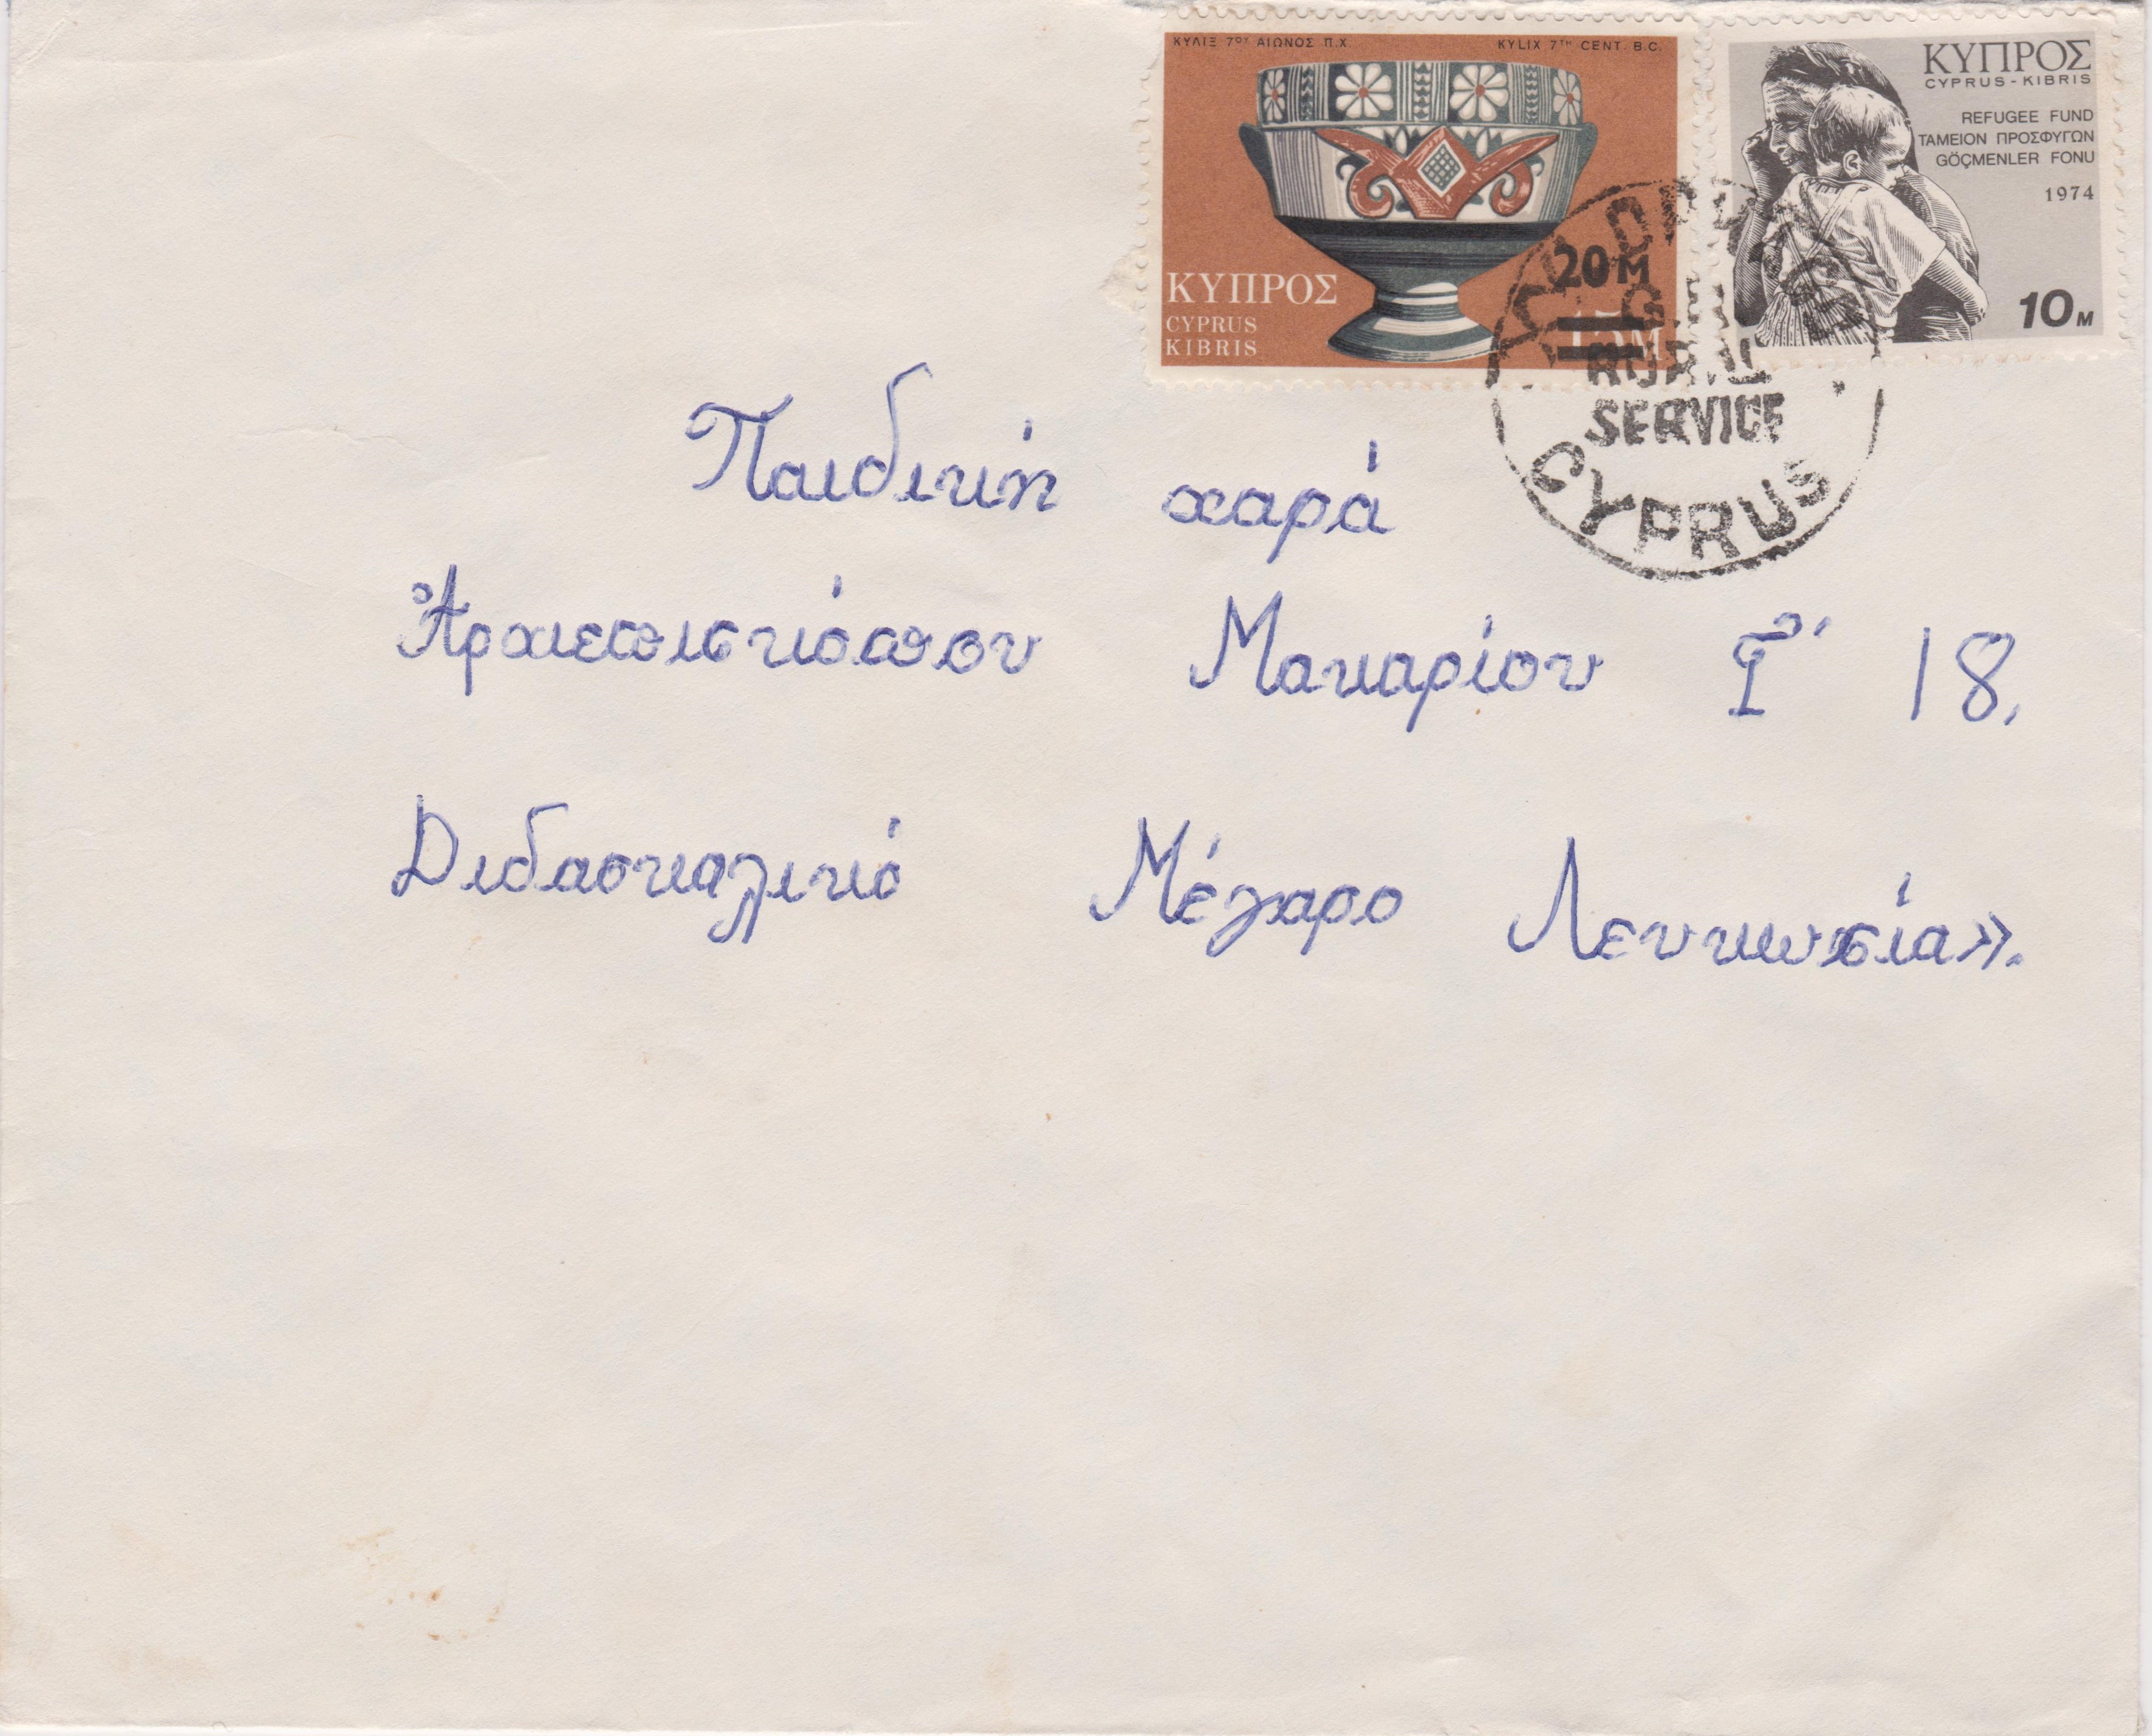 ΚΥΛΙΞ 7ΟΥ ΑΙΩΝΟΣ Π.Χ. KYLIX 7TH CENT. B.C.
ΚΥΠΡΟΣ
CYPRUS
KIBRIS
20M
15M
ΚΥΠΡΟΣ
CYPRUS - KIBRIS
REFUGEE FUND
ΤΑΜΕΙΟΝ ΠΡΟΣΦΥΓΩΝ
GÖÇMENLER FONU
1974
10M
RURAL
SERVICE
CYPRUS
Παιδική χαρά
Ἀρχιεπισκόπου Μακαρίου Γ' 18,
Διδασκαλικό Μέγαρο Λευκωσία».